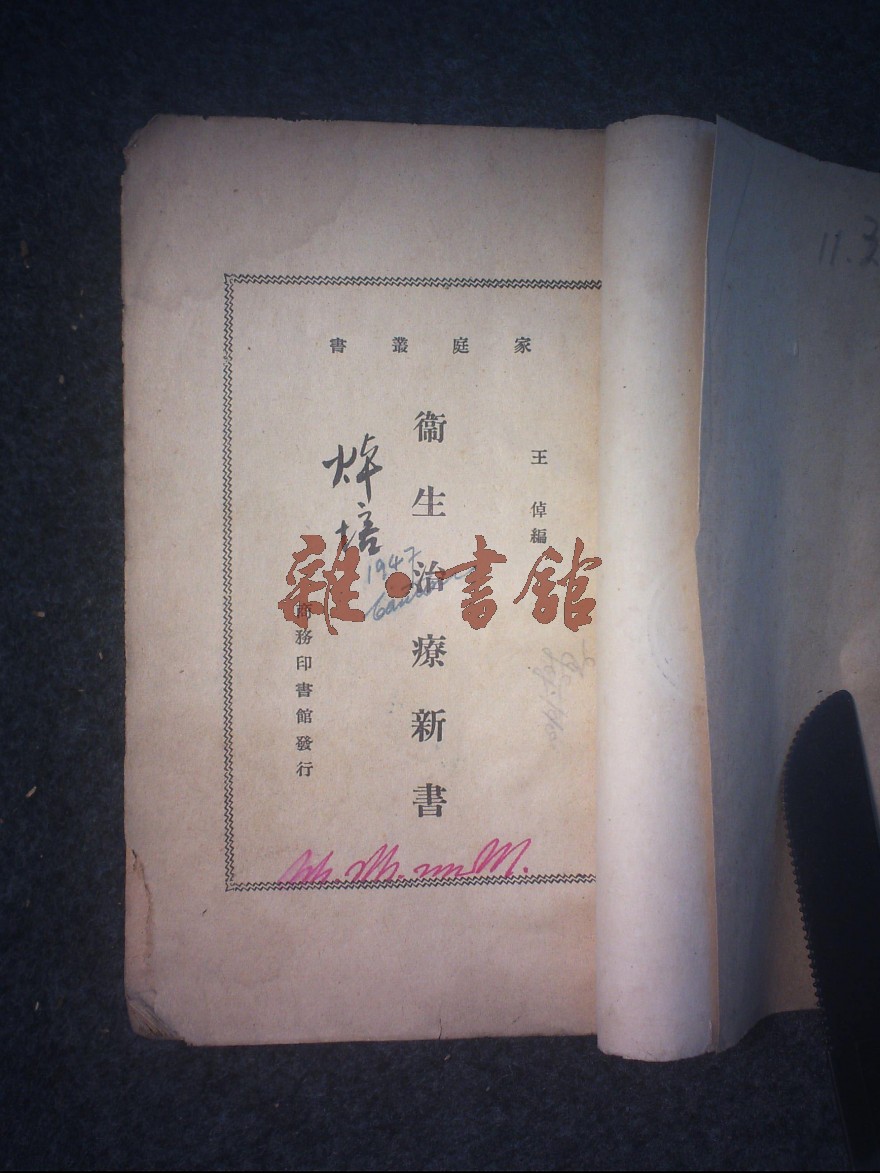 家庭叢書
王倬編
衞生治療新書
焯培
1947
商務印書館發行
雜·書館
11.3